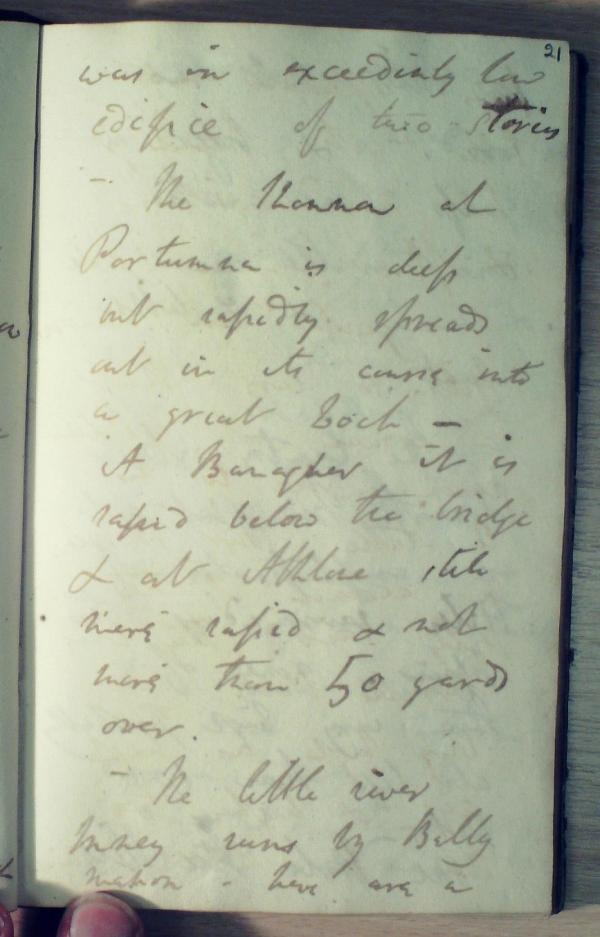 21
was in exceedinly low
edifice of two stories
- The Shannon at
Portumna is deep
but rapidly spreads
out in its course into
a great Loch -
At Banagher it is
rapid below the bridge
& at Athlone still
more rapid & not
more than 50 yards
over.
- The little river
Inney runs by Bally
mahon - here are a